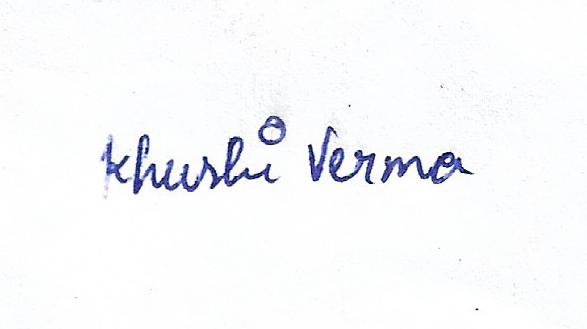 Khushi Verma